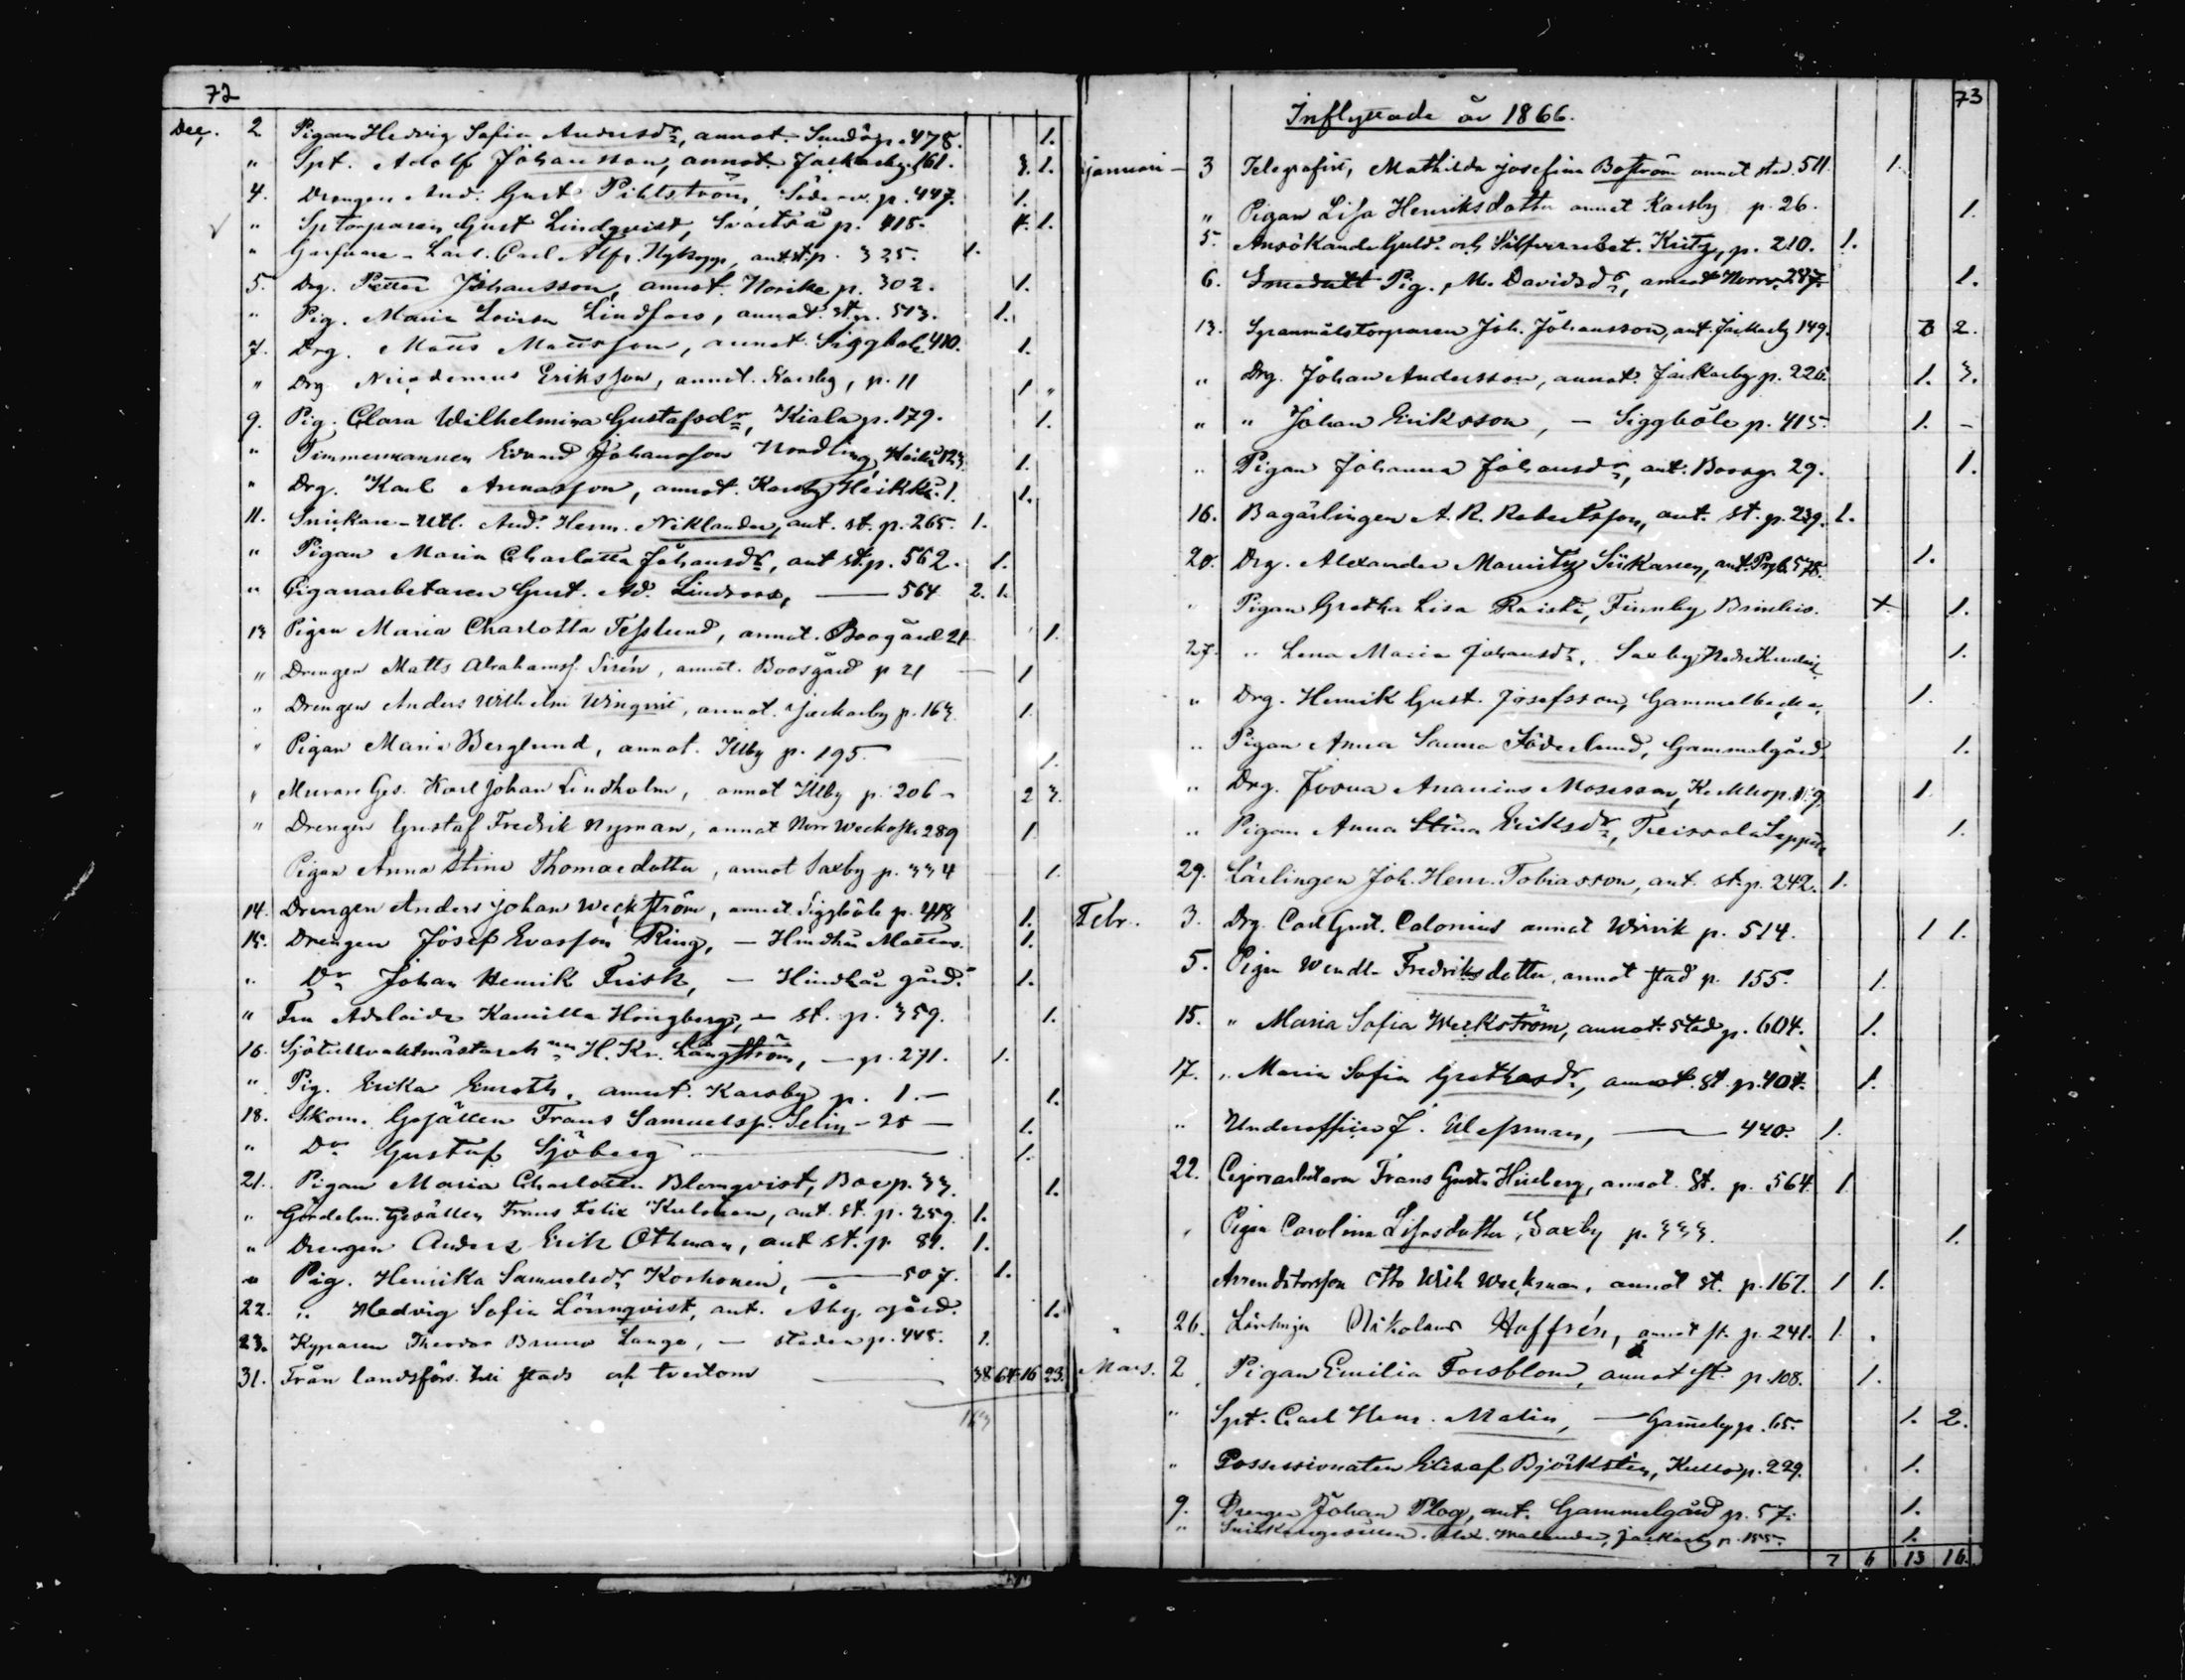 72
Dec. 2 Pigan Hedvig Sofia Andersdr, annot. Sundö p. 478. 1.
" Spt. Adolf Johansson, annot. Jackarby 161. 3. 1.
4. Drengen And. Gust. Pihlström, Söderv. p. 447. 1.
" Sptorparen Gust Lindqvist, Svartså p. 415. 4. 1.
" Carl Alfr. Nykopp, ant. st. p. 325. 1.
5. Drg. Petter Johansson, annot. Norike p. 302. 1.
" Pig. Maria Lovisa Lindfors, annot. st. p. 513. 1.
7. Drg. Mats Matsson, annot. Siggböle 410. 1.
" Drg Nicodemus Eriksson, annot. Karsby, p. 11 1 "
9. Pig. Clara Wilhelmina Gustafsdr, Kiala p. 179. 1.
" Timmermannen Evard Johansson Nordling, 1.
" Drg. Karl Annasson, annot. Karsby Heikkä. 1. 1.
11. Snickare-Utl. And. Herm. Niklander, ant. st. p. 265. 1.
" Pigan Maria Charlotta Johansdr, ant st. p. 562. 1.
" Cigarrarbetaren Gust. Ad. Lindroos, — 564 2. 1.
13 Pigan Maria Charlotta Tesslund, annot. Boogård 21 1.
" Drengen Matts Abrahamss. Sirén, annot. Boosgård p 21 — 1
" Drengen Anders Wilhelm Winqvist, annot. Jackarby p. 163 1.
" Pigan Maria Berglund, annot. Illby p. 195 — 1.
" Murare Ges. Karl Johan Lindholm, annot Illby p. 206 - 2 3.
" Drengen Gustaf Fredrik Nyman, annot Norr Weckoski 289 1
Pigan Anna Stina Thomasdotter, annot Saxby p. 334 1.
14. Drengen Anders Johan Weckström, annot. Siggböle p. 418 1.
15. Drengen Josef Evasson Ring, — Hindhår Mattas. 1.
" Do Johan Henrik Frisk, — Hindhår gård. 1.
" Fru Adelaide Kamilla Hougberg, — st. p. 359. 1.
16. Sjötullvaktmästareh H. Kr. Långström, — p. 271. 1.
" Pig. Erika Enroth, annot. Karsby p. 1. — 1.
18. Skom. Gesällen Frans Samuelss. Selin - 25 — 1.
" Do Gustaf Sjöberg — 1.
21. Pigan Maria Charlotta Blomqvist, Boe p. 33. 1.
" Gördelm. Gesällen Frans Felix Kulonen, ant. st. p. 259. 1.
" Drengen Anders Erik Othman, ant st. p. 81. 1.
" Pig. Henrika Samuelsdr Korhonen, — 507. 1.
22. " Hedvig Sofia Lönnqvist, ant. Åby gård. 1.
23. Kyparen Theodor Bruno Lange, — staden p. 445. 1.
31. Från landsförs. till stads och tvertom — 38 64 16 23.
73
Inflyttade år 1866.
Januari — 3 Telegrafist, Mathilda Josefina Boström annot stad. 511. 1.
" Pigan Lisa Henriksdotter annot Karsby p. 26. 1.
5. Ansökande Guld- och Silfverarbet. Kritz, p. 210. 1.
6. Pig. M. Davidsdr, annot Norrv. 287. 1.
13. Spanmålstorparen Joh. Johansson, ant. Jackarby 149. 3 2.
" Drg. Johan Andersson, annot. Jackarby p. 226. 1. 3.
" " Johan Eriksson, — Siggböle p. 415. 1. —
" Pigan Johanna Johansdr, ant. Boosg. 29. 1.
16. Bagarlingen A. R. Robertsson, ant. st. p. 239. 1.
20. Drg. Alexander Mauritz Siikanen, ant. Prgb. 578. 1.
" Pigan Gretha Lisa Raisti, Finnby Brinkis. + 1.
27. " Lena Maria Johansdr, Saxby 1.
" Drg. Henrik Gust. Josefsson, Gammelbacka. 1.
" Pigan Anna Sanna Söderlund, Gammelgård. 1.
" Drg. Joova Ananias Mosesson, Kerkko p. 159 1.
" Pigan Anna Stina Eriksdr, Treissala Leppälä 1.
29. Lärlingen Joh. Henr. Tobiasson, ant. st. p. 242. 1.
Febr. 3. Drg. Carl Gust. Calonius annot Wirvik p. 514. 1 1.
5. Pigan Wendla Fredriksdotter, annot stad p. 155. 1.
15. " Maria Sofia Weckström, annot. stad p. 604. 1.
17. " Maria Sofia Grethasdr, annot. st. p. 404. 1.
" Underofficer J. Ulessman, — 440. 1.
22. Cigarrarbetaren Frans Gust. Hirsberg, annot. St. p. 564 1
" Pigan Carolina Lisasdotter, Saxby p. 333. 1.
Arrendatorsson Otto Wilh Weckman, annot st. p. 167. 1 1.
" 26. Lärlingen Nikolaus Haffrén, annot st. p. 241. 1.
Mars. 2 Pigan Emilia Forsblom, annot st. p. 108. 1.
" Spt. Carl Henr. Malin, — Gammelby p. 65. 1. 2.
" Possessionaten Björkstén, Kullo p. 229. 1.
9. Drengen Johan Plog, ant. Gammelgård p. 57. 1.
" Snickaregesällen Alex. Malander, Jackarby p. 155. 1.
7 6 13 16.